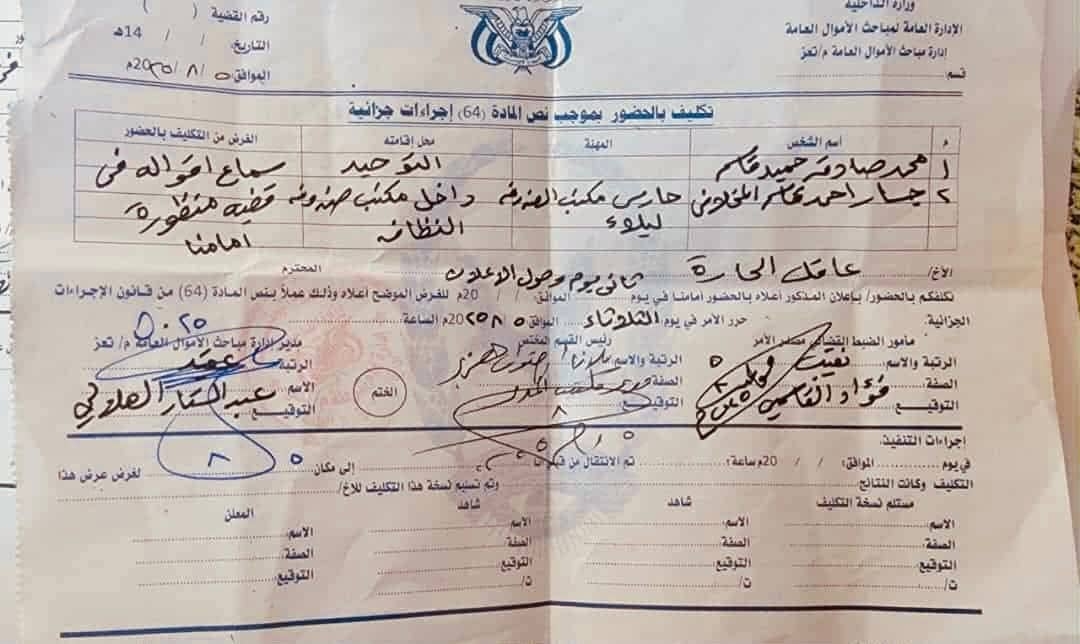 وزارة الداخلية
الإدارة العامة لمباحث الأموال العامة
إدارة مباحث الأموال العامة م/تعز
قسم:
رقم القضية ( )
التاريخ: / / 14هـ
الموافق: ٥ / ٨ / ٢٠٢٥م
تكليف بالحضور بموجب نص المادة (64) إجراءات جزائية
م اسم الشخص المهنة محل إقامته الغرض من التكليف بالحضور
١ محمد صادق حميد قاسم التوحيد سماع اقواله في
٢ جسار احمد قاسم المخلافي حارس مكتب الصندوق داخل مكتب صندوق قضيه منظورة
ليلاً النظافه امامنا
الأخ/ عاقل الحارة المحترم
نكلفكم بالحضور/ بإعلان المذكور أعلاه بالحضور أمامنا في يوم ثاني يوم وصول الاعلان الموافق: / / 20م للغرض الموضح أعلاه وذلك عملاً بنص المادة (64) من قانون الإجراءات
الجزائية. حرر الأمر في يوم الثلاثاء الموافق ٥ / ٨ / ٢٠٢٥م الساعة:
مأمور الضبط القضائي مصدر الأمر رئيس القسم المختص مدير إدارة مباحث الأموال العامة م/ تعز
الرتبة والاسم نقيب الرتبة والاسم الرتبة عقيد
الصفة فؤاد القاسمي الصفة الختم الاسم عبدالستار
التوقيع التوقيع التوقيع
إجراءات التنفيذ:
في يوم الموافق: / / 20م ساعة: تم الانتقال من قبلنا إلى مكان لغرض عرض هذا
التكليف وكانت النتائج: وتم تسليم نسخة هذا التكليف للأخ/
مستلم نسخة التكليف شاهد شاهد المعلن
الاسم: الاسم: الاسم الاسم:
الصفة: الصفة: الصفة: الصفة:
التوقيع التوقيع التوقيع التوقيع
ت/ ت/ ت/